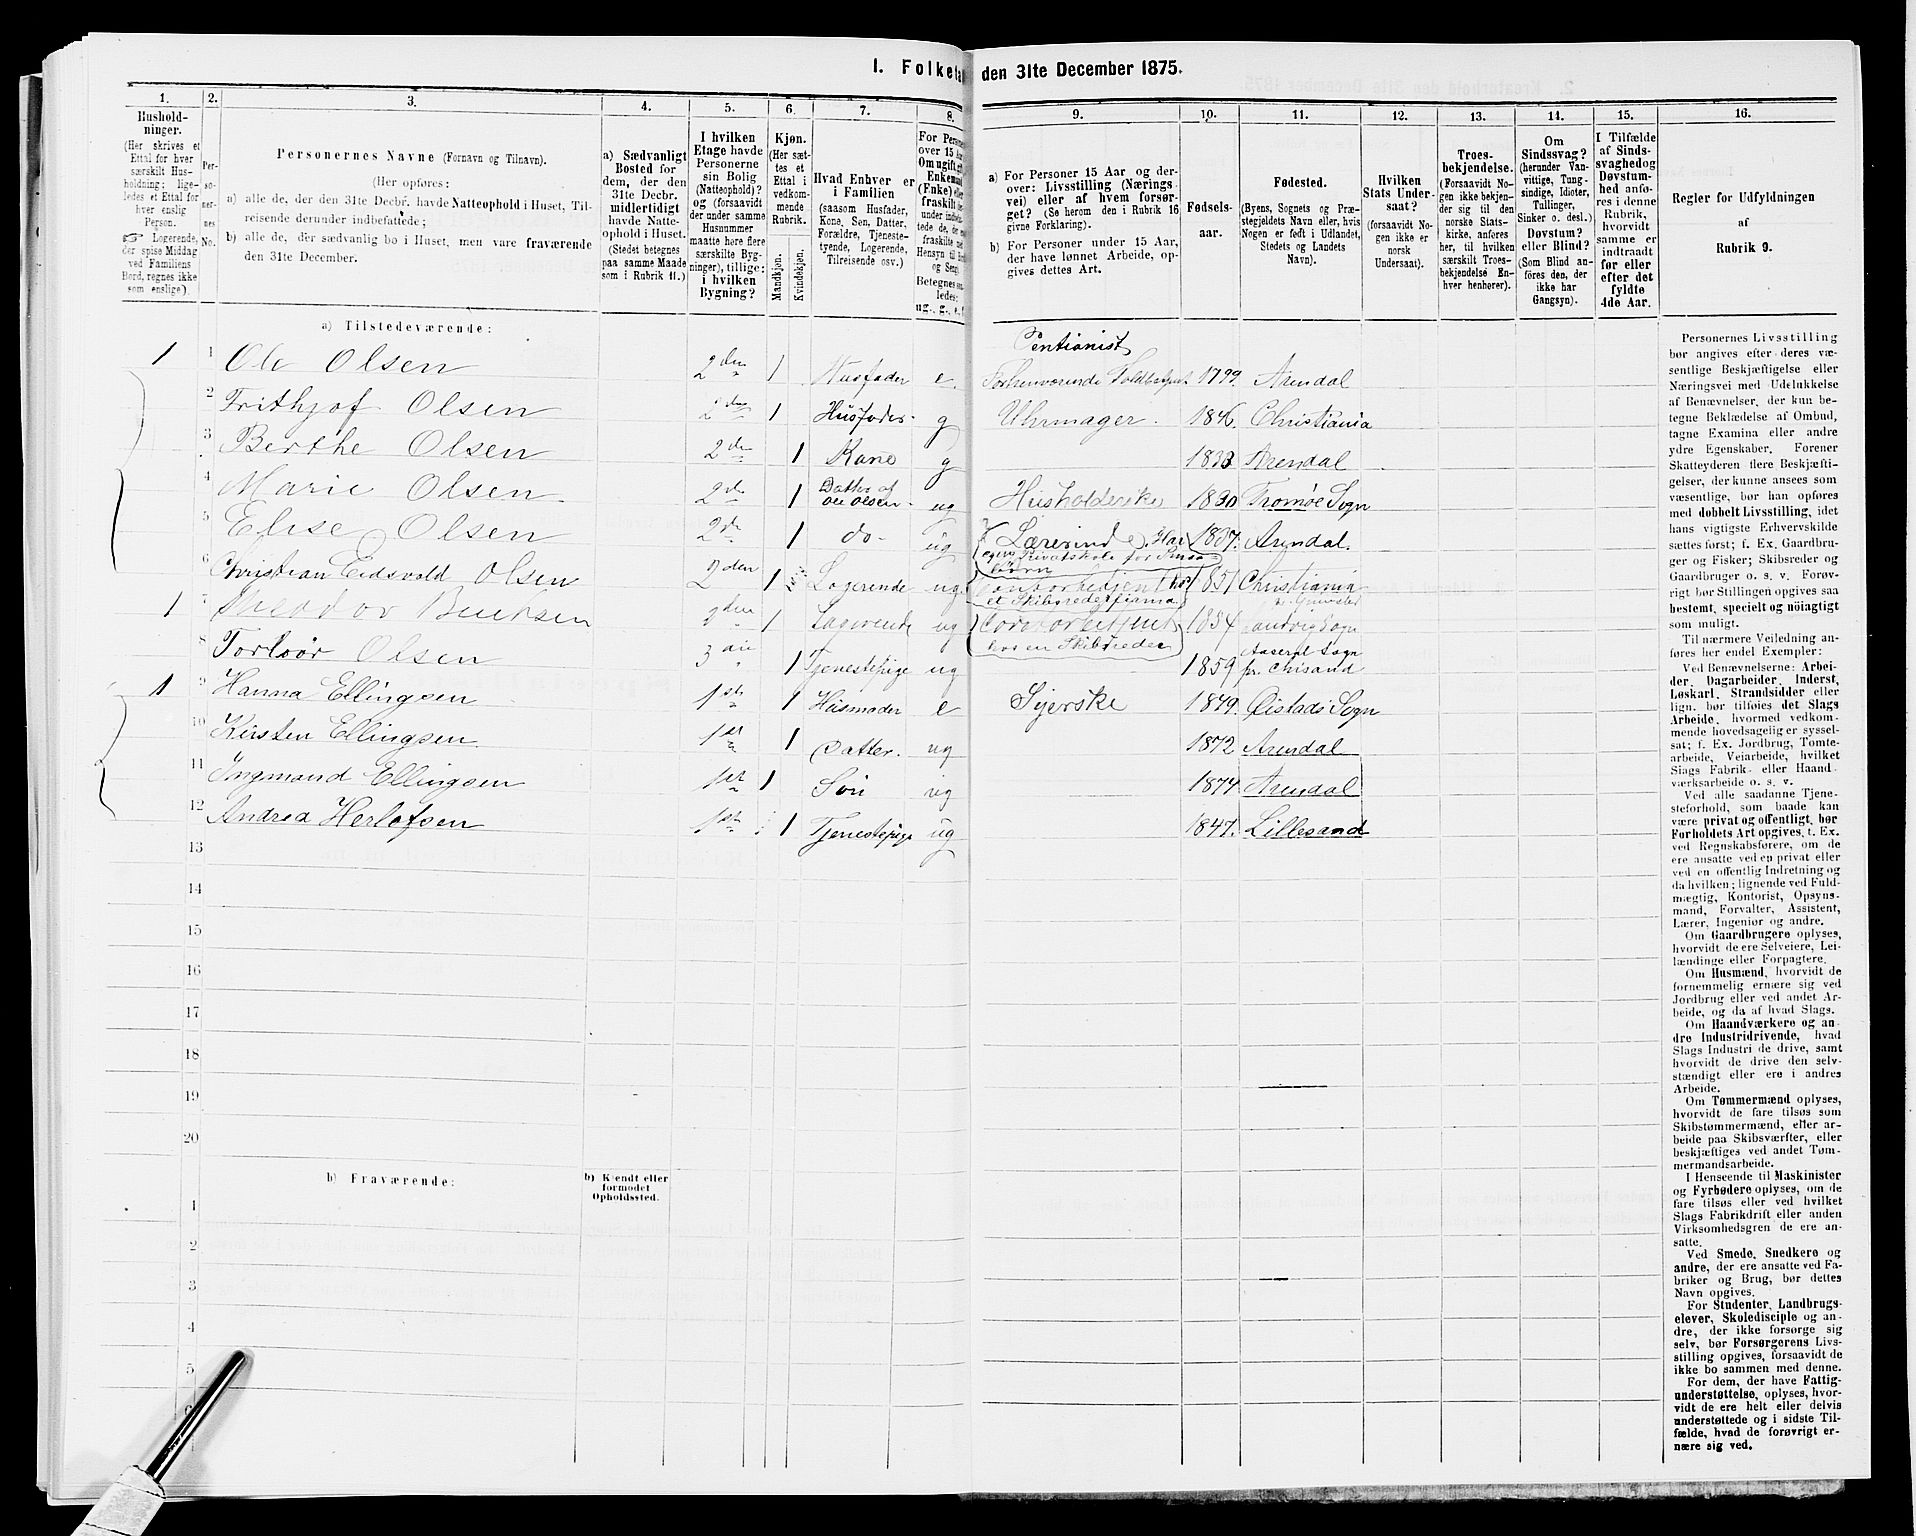 I. Folketæ den 31te December 1875.
1. 2. 3. 4. 5. 6. 7. 8. 9. 10. 11. 12. 13. 14. 15. 16.
Hushold-
ninger.
(Her skrives et
Ettal for hver
særskilt Hus-
holdning; lige-
ledes et Ettal for
hver enslig
Person.
☞ Logerende,
der spise Middag
ved Familiens
Bord, regnes ikke
som enslige).
Per-
so-
ner-
nes
No.
Personernes Navne (Fornavn og Tilnavn).
(Her opføres:
a) alle de, der den 31te Decbr. havde Natteophold i Huset, Til-
reisende derunder indbefattede;
b) alle de, der sædvanlig bo i Huset, men vare fraværende
den 31te December.
a) Sædvanligt
Bosted for
dem, der den
31te Decbr.
midlertidigt
havde Natte-
ophold i Huset.
(Stedet betegnes
paa samme Maade
som i Rubrik 11.)
I hvilken
Etage havde
Personerne
sin Bolig
(Natteophold)?
og (forsaavidt
der under samme
Husnummer
maatte høre flere
særskilte Byg-
ninger), tillige:
i hvilken
Bygning?
Kjøn.
(Her sæt-
tes et
Ettal i
vedkom-
mende
Rubrik.
Mandkjøn.
Kvindekjøn.
Hvad Enhver er
i Familien
(saasom Husfader,
Kone, Søn, Datter,
Forældre, Tjeneste-
tyende, Logerende,
Tilreisende osv.)
For Persone
over 15 Aa
Om ugift, g
Enkemand
(Enke) elle
fraskilt
Betegnes saa
ledes:
ug., g., e.,
a) For Personer 15 Aar og der-
over: Livsstilling (Nærings
vei) eller af hvem forsør-
get? (Se herom den i Rubrik 16
givne Forklaring).
b) For Personer under 15 Aar,
der have lønnet Arbeide, op-
gives dettes Art.
Fødsels-
aar.
Fødested.
(Byens, Sognets og Præ-
stegjeldets Navn eller, hvis
Nogen er født i Udlandet,
Stedets og Landets
Navn).
Hvilken
Stats Under-
saat?
(forsaavidt No-
gen ikke er
norsk
Undersaat).
Troes-
bekjendelse.
(Forsaavidt No-
gen ikke bekjen-
der sig til den
norske Stats-
kirke, anføres
her, til hvilken
særskilt Troes-
bekjendelse En-
hver henhører).
Om
Sindssvag?
(herunder Van-
vittige, Tung-
sindige, Idioter,
Tullinger,
Sinker o. desl.)
Døvstum?
eller Blind?
(Som Blind an-
føres den, der
ikke har
Gangsyn).
I Tilfælde
af Sinds-
svaghedog
Døvstum-
hed anfø-
res i denne
Rubrik,
hvorvidt
samme er
indtraadt
før eller
efter det
fyldte
4de Aar.
Regler for Udfyldningen
af
Rubrik 9.
a) Tilstedeværende:
Pentionist
1 1 Ole Olsen 2den 1 Husfader e. Forhenværende 1799. Arendal
2 Frithjof Olsen 2den 1 Husfader g Uhrmager. 1846. Christiania
3 Berthe Olsen 2den 1 Kone g 1833 Arendal
4 Marie Olsen 2den 1 Datter af Ole Olsen ug Husholderske 1830 Tromøe Sogn
5 Elise Olsen 2den 1 do ug Lærerinde. Har 1837. Arendal.
egen Privatskole for Smaa
børn
6 Christian Eidsvold Olsen 2den 1 Logerende ug Contorbetjent hos 1851 Christiania
et Skibsrederfirma
1 7 Theodor 2den 1 Logerende ug Contorbetjent 1854 Landvig Sogn
hos en Skibsreder
8 Torbør Olsen 3die 1 Tjenestepige ug 1859 Aaseral Sogn pr. Chrsand
1 9 Hanna Ellingsen 1ste 1 Husmoder e Syerske 1849. Øistads Sogn
10 Kirsten Ellingsen 1ste 1 Datter. ug 1872 Arendal
11 Ingmand Ellingsen 1ste 1 Søn ug 1874 Arendal
12 Andrea Herlofsen 1ste 1 Tjenestepige ug 1847. Lillesand
13
14
15
16
17
18
19
20
b) Fraværende:
b) Kjendt eller
formodet
Opholdssted.
1
2
3
4
5
6
Personernes Livsstilling
bør angives efter deres væ-
sentlige Beskjæftigelse eller
Næringsvei med Udelukkelse
af Benævnelser, der kun be-
tegne Beklædelse af Ombud,
tagne Examina eller andre
ydre Egenskaber. Forener
Skatteyderen flere Beskjæfti-
gelser, der kunne ansees som
væsentlige, bør han opføres
med dobbelt Livsstilling, idet
hans vigtigste Erhvervskilde
sættes først; f. Ex. Gaardbru-
ger og Fisker; Skibsreder og
Gaardbruger o. s. v. Forøv-
rigt bør Stillingen opgives saa
bestemt, specielt og nøiagtigt
som muligt.
Til nærmere Veiledning an-
føres her endel Exempler:
Ved Benævnelserne: Arbei-
der, Dagarbeider, Inderst,
Løskarl, Strandsidder eller
lign. bør tilføies det Slags
Arbeide, hvormed vedkom-
mende hovedsagelig er syssel-
sat; f. Ex. Jordbrug, Tomte-
arbeide, Veiarbeide, hvilket
Slags Fabrik- eller Haand-
værksarbeide o. s. v.
Ved alle saadanne Tjene-
steforhold, som baade kan
være privat og offentligt, bør
Forholdets Art opgives, t. Ex.
ved Regnskabsførere, om de
ere ansatte ved en privat eller
ved en offentlig Indretning og
da hvilken; lignende ved Fuld-
mægtig, Kontorist, Opsyns-
mand, Forvalter, Assistent,
Lærer, Ingeniør og andre.
Om Gaardbrugere oplyses,
hvorvidt de ere Selveiere, Lei-
lændinge eller Forpagtere.
Om Husmænd, hvorvidt de
fornemmelig ernære sig ved
Jordbrug eller ved andet Ar-
beide, og da af hvad Slags.
Om Haandværkere og an-
dre Industridrivende, hvad
Slags Industri de drive, samt
hvorvidt de drive den selv-
stændigt eller ere i andres
Arbeide.
Om Tømmermænd oplyses,
hvorvidt de fare tilsøs som
Skibstømmermænd, eller ar-
beide paa Skibsværfter, eller
beskjæftiges ved andet Tøm-
mermandsarbeide.
I Henseende til Maskinister
og Fyrbødere oplyses, om de
fare tilsøs eller ved hvilket
Slags Fabrikdrift eller anden
Virksomhedsgren de ere an-
satte.
Ved Smede, Snedkere og
andre, der ere ansatte ved Fa-
briker og Brug, bør dettes
Navn opgives.
For Studenter, Landbrugs-
elever, Skoledisciple og an-
dre, der ikke forsørge sig
selv, bør Forsørgerens Livs-
stilling opgives, forsaavidt de
ikke bo sammen med denne.
For dem, der have Fattig-
understøttelse, oplyses, hvor-
vidt de ere helt eller delvis
understøttede og i sidste Til-
fælde, hvad de forøvrigt er-
nære sig ved.